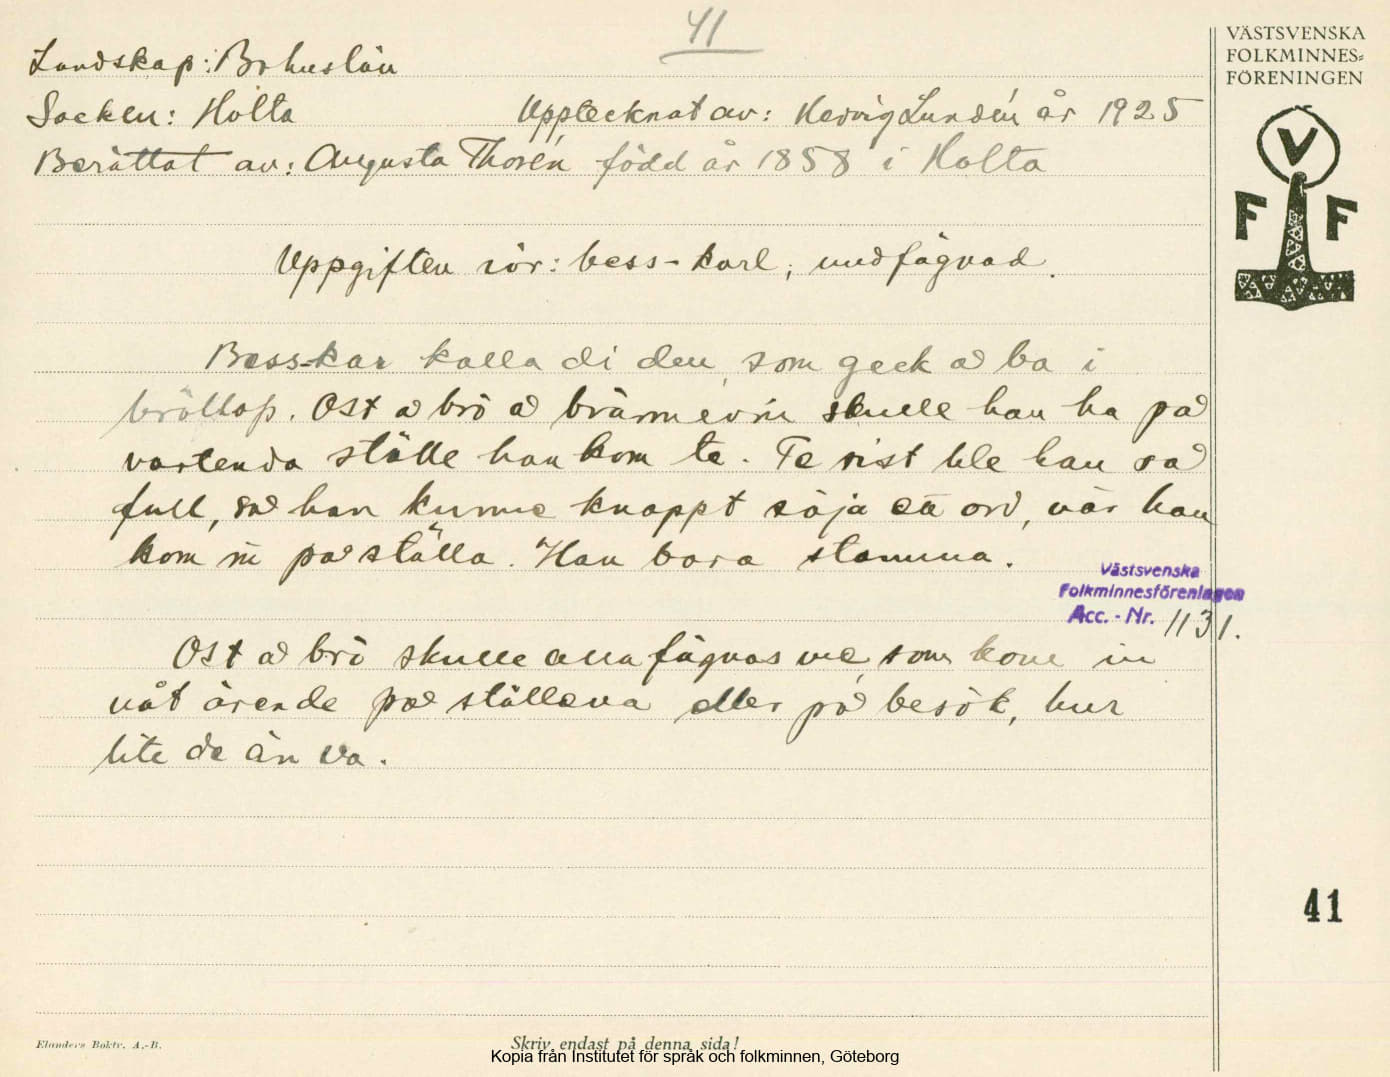 41
VÄSTSVENSKA
FOLKMINNES=
FÖRENINGEN
V
F F
Landskap: Bohuslän
Socken: Holta Upptecknat av: Hedvig Lundén år 1925
Berättat av: Augusta Thorén född år 1858 i Holta
Uppgiften rör: bess-karl, undfägnad.
Bess-kar kalla di den, som geck å ba i
bröllop. Ost å brö å brännevin skulle han ha på
vartenda ställe han kom te. Te sist ble han så
full, så han kunne knappt säja ett ord, när han
kom in på ställa. Han bara stamma.
Västsvenska
Folkminnesföreningen
Acc. - Nr. 1131.
Ost å brö skulle alla fägnas me, som kom in
nåt ärende på ställena eller på besök, hur
lite de än va.
41
Elanders Boktr. A.-B.
Skriv endast på denna sida!
Kopia från Institutet för språk och folkminnen, Göteborg